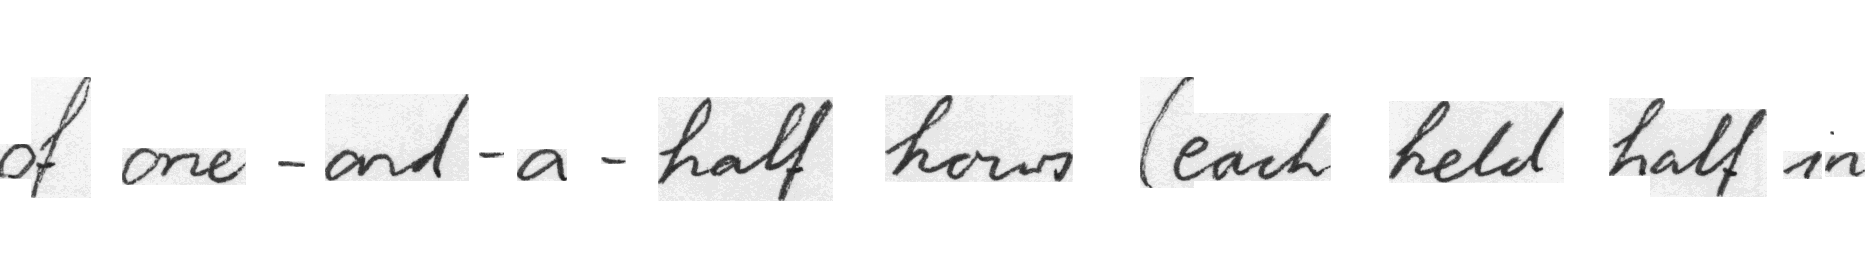 of one - and - a - half hours (each held half in